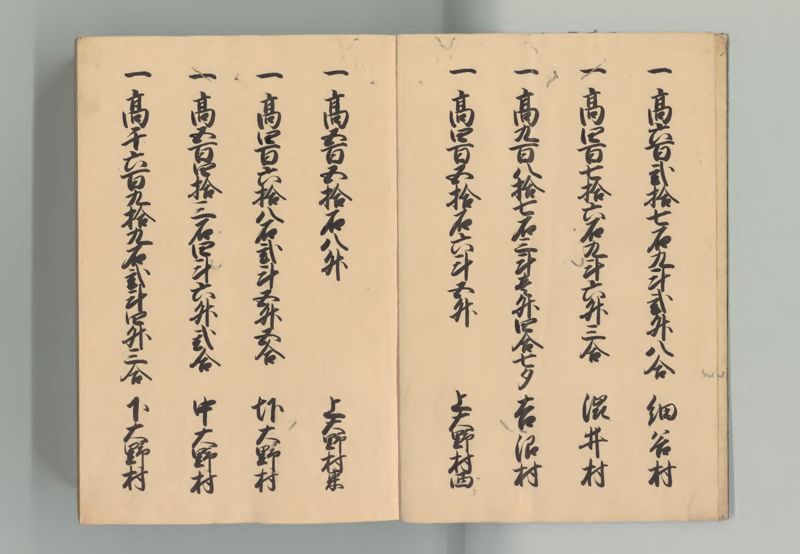 一 高六百弐拾七石九斗弐升八合 細谷村
一 高四百七拾六石九斗六升三合 渋井村
一 高九百八拾七石三斗壱升四合七夕 吉沼村
一 高四百五拾石六斗五升 上大野村西
一 高五百五拾石八升 上大野村東
一 高四百六拾八石弐斗五升五合 圷大野村
一 高五百四拾三石四斗六升弐合 中大野村
一 高千六百九拾九石弐斗四升三合 下大野村